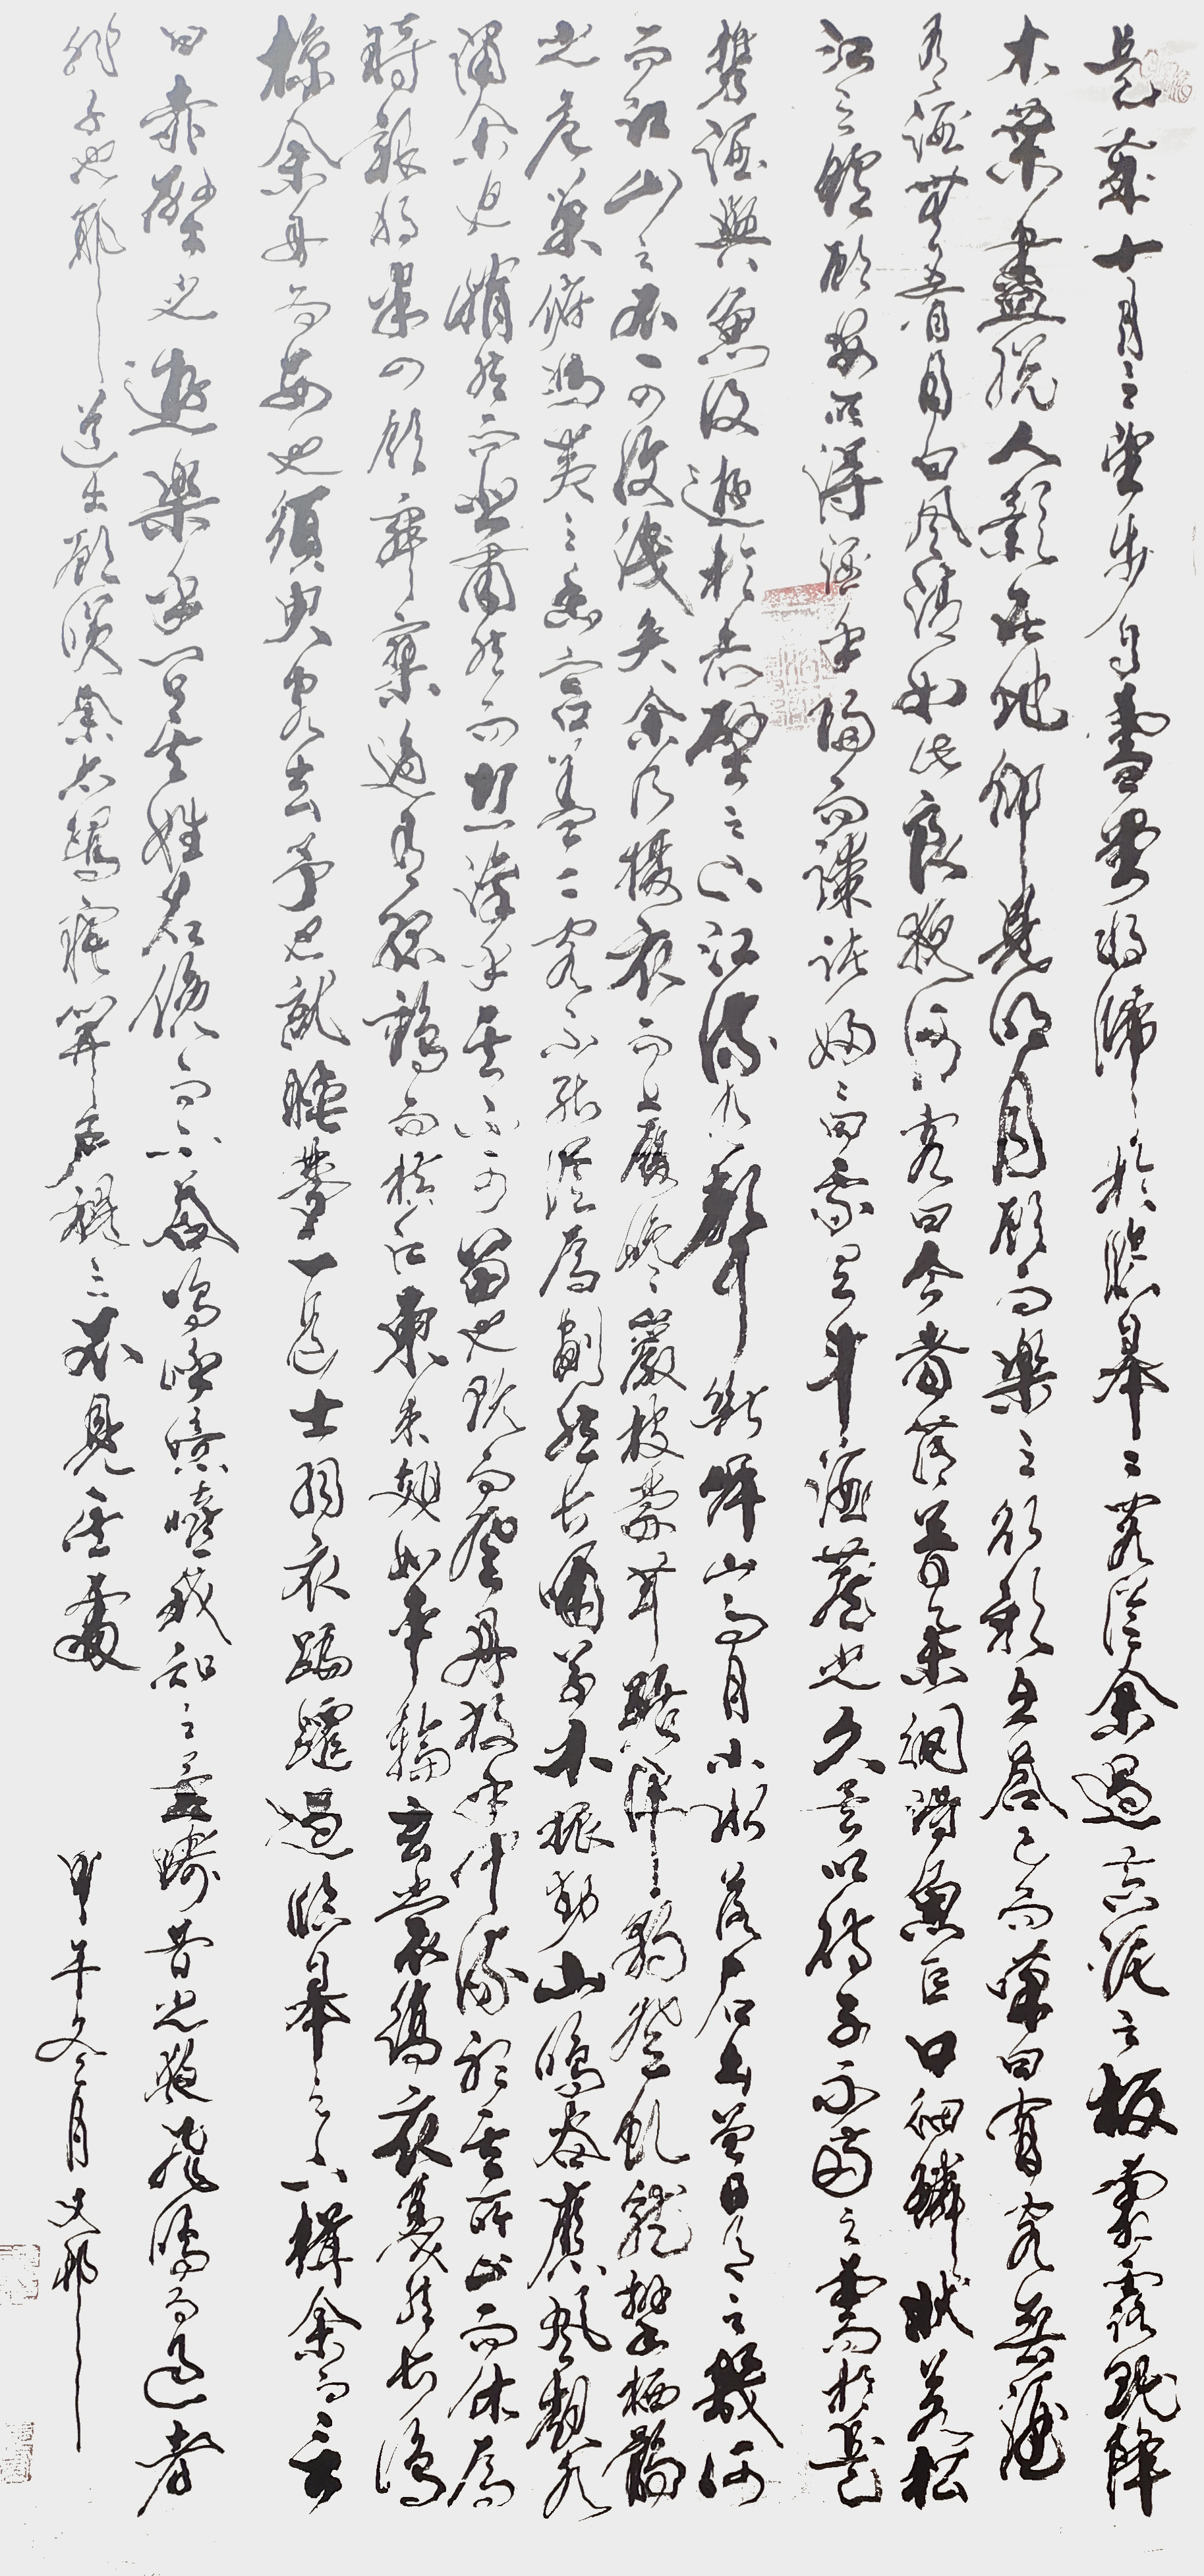 是歲十月之望步自雪堂將歸於臨皋二客從余過黃泥之板霜露既降
木葉盡脫人影在地仰見明月顧而樂之行歌互答已而嘆曰有客無酒
有酒無肴月白風清如此良夜何客曰今者薄暮舉網得魚巨口細鱗狀若松
江之鱸顧安所得酒乎歸而謀諸婦〻曰我有斗酒藏之久矣以待子不時之需於是
攜酒與魚復遊於赤壁之下江流有聲斷岸山高月小水落石出曾日月之幾何
而江山之不可復識矣余乃攝衣而上履巉巖披蒙茸踞虎豹登虬龍攀棲鶻
之危巢俯馮夷之幽宮蓋二客不能從焉劃然長嘯草木振動山鳴谷應風起水
涌余亦悄然而悲肅然而恐凜乎其不可留也反而登舟放乎中流聽其所止而休焉
時夜將半四顧寂寥適有孤鶴而橫江東來翅如車輪玄裳縞衣戛然長鳴
掠余舟而西也須臾客去予亦就睡夢一道士羽衣蹁躚過臨皋之下揖余而言
曰赤壁之遊樂乎問其姓名俛而不答嗚呼噫嘻我知之矣疇昔之夜飛鳴而過者
非子也耶道士顧笑余亦驚寤開戶視之不見其處
甲午冬月